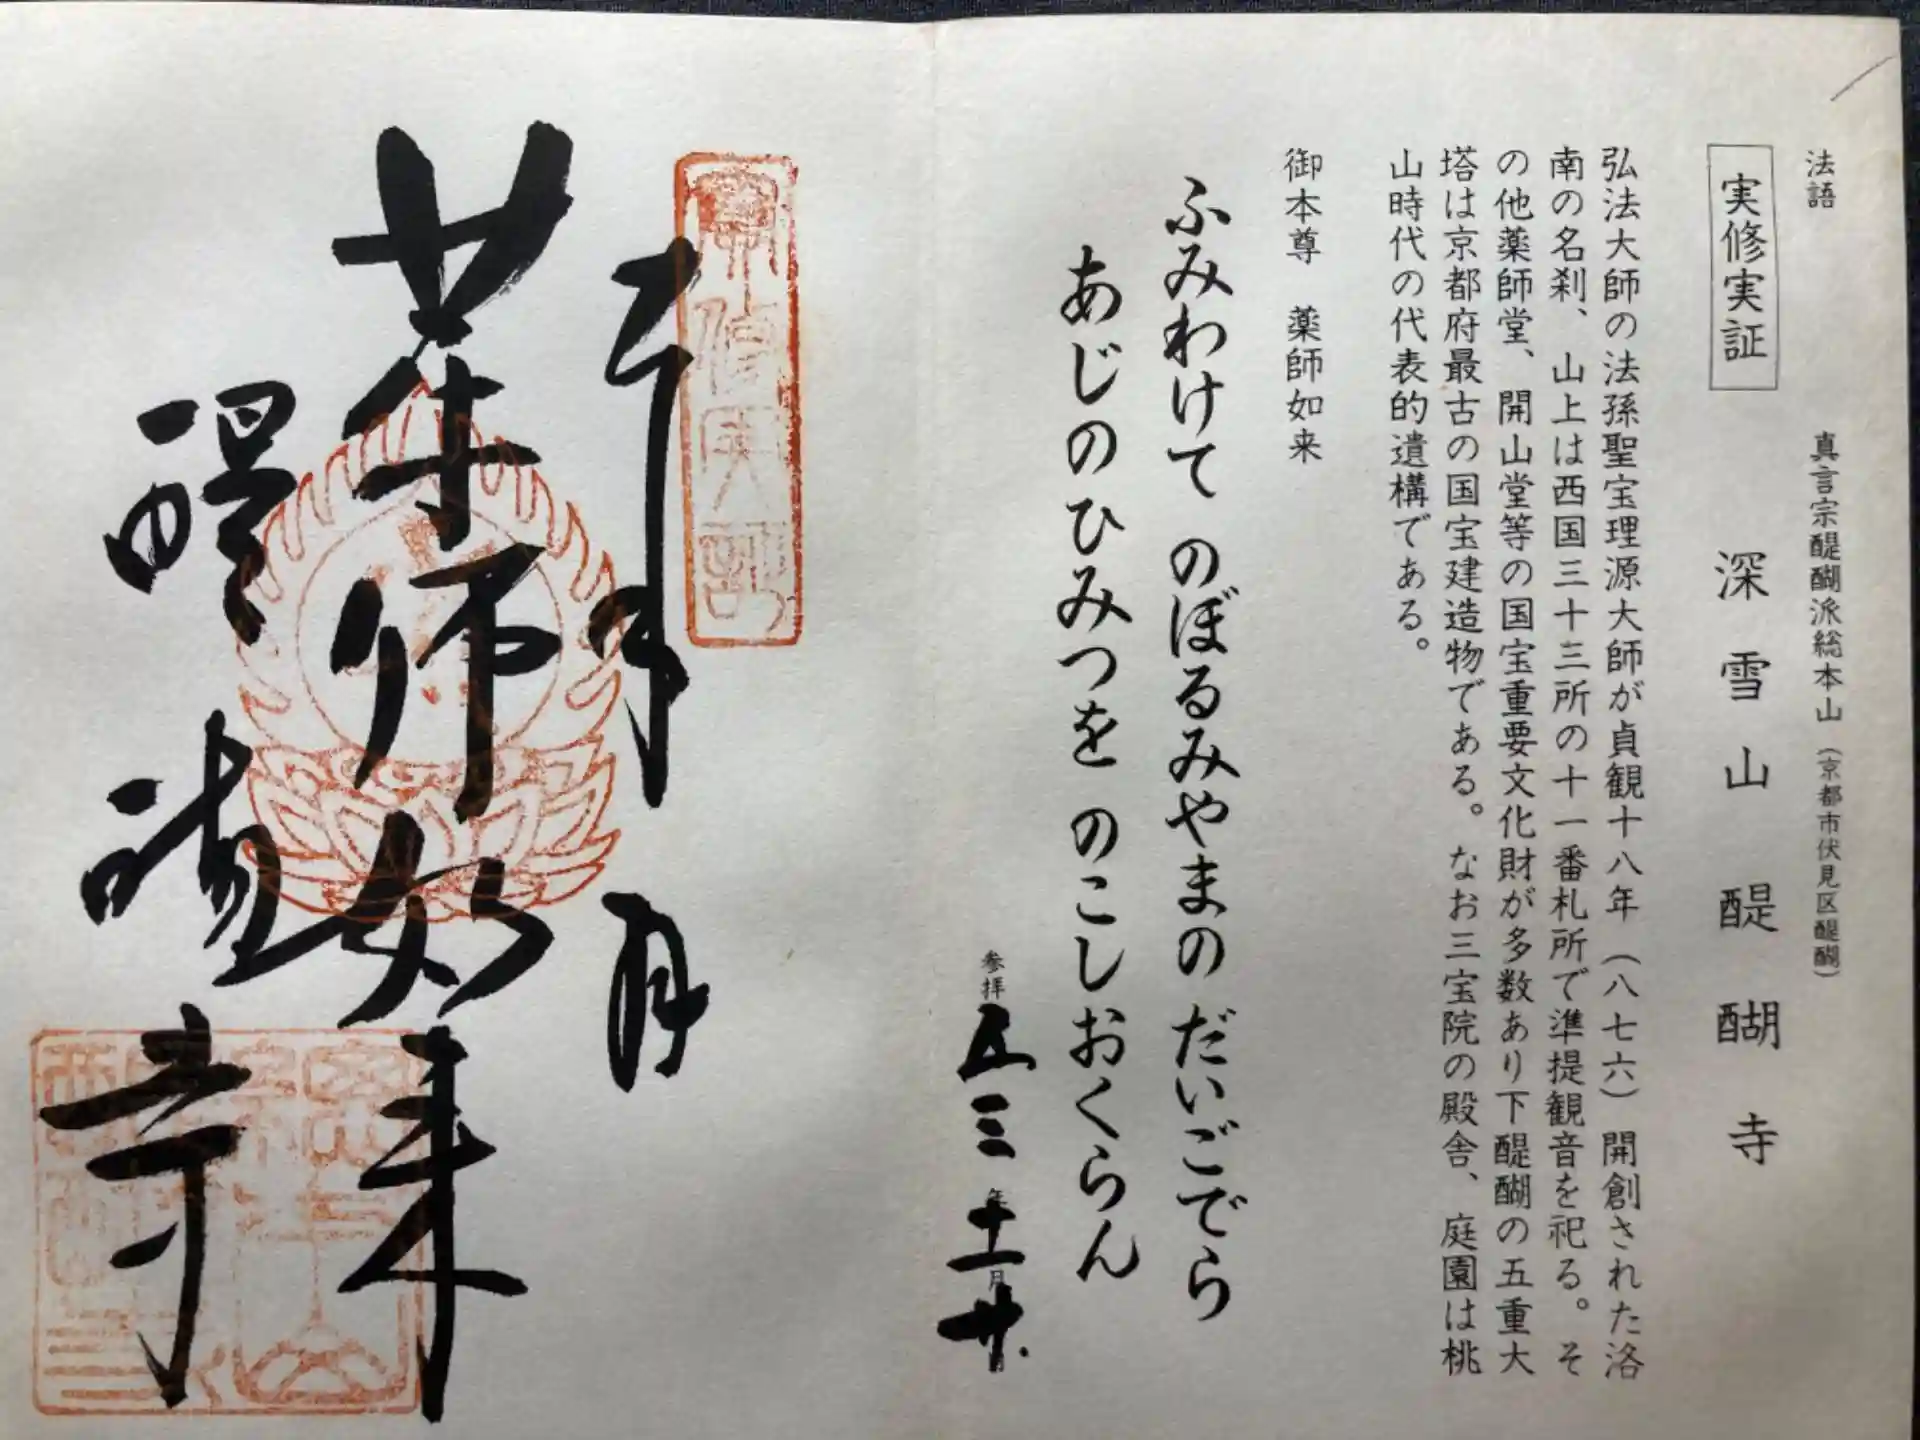 法語
真言宗醍醐派総本山(京都市伏見区醍醐)
実修実証
深雪山醍醐寺
弘法大師の法孫聖宝理源大師が貞観十八年(八七六)開創された洛
南の名刹、山上は西国三十三所の十一番札所で準提観音を祀る。そ
の他薬師堂、開山堂等の国宝重要文化財が多数あり下醍醐の五重大
塔は京都府最古の国宝建造物である。なお三宝院の殿舎、庭園は桃
山時代の代表的遺構である。
御本尊 薬師如来
ふみわけて のぼるみやまの だいごでら
あじのひみつを のこしおくらん
参拝 五三年十一月廿日
奉拝
月
薬師如来
醍醐寺